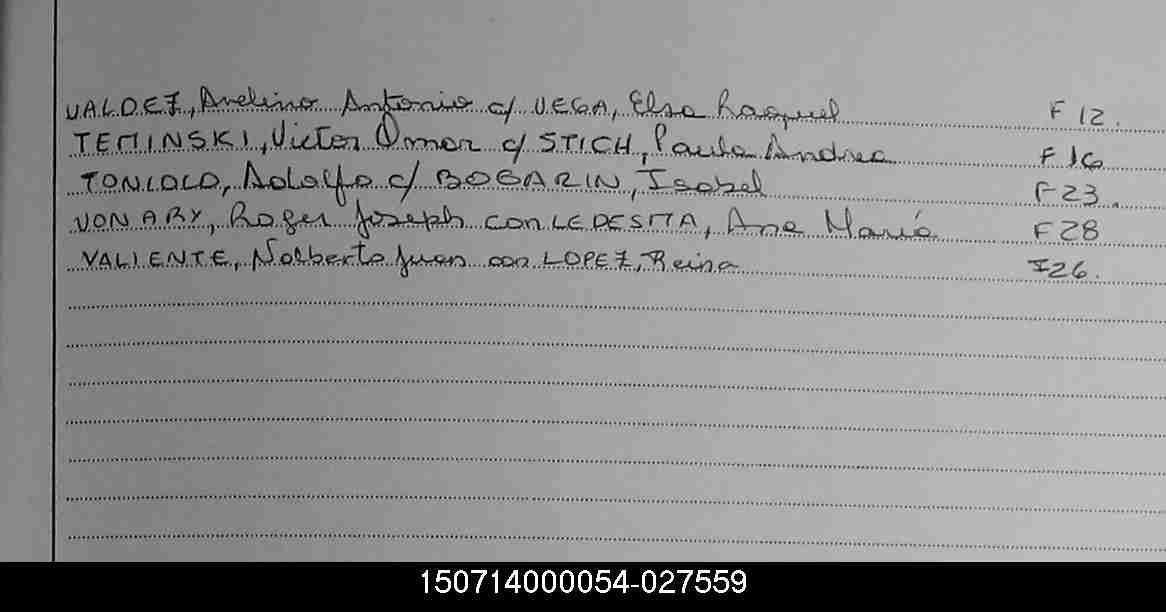 VALDEZ, Avelino Antonio c/ VEGA, Elsa Raquel F 12.
TEMINSKI, Victor Omar c/ STICH, Paula Andrea F 16
TONLOLO, Adolfo c/ BOGARIN, Isabel F 23.
VON ARX, Roger Joseph con LEDESMA, Ana María F 28
VALIENTE, Nolberto Juan con LOPEZ, Reina I 26.
150714000054-027559